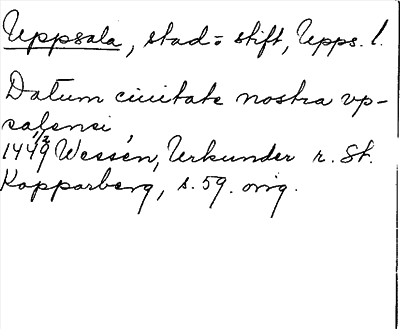 Uppsala, stad o stift, Upps. l.
Datum ciuitate nostra vp-
salensi,
1449 1/2 Wessén, Urkunder r. St.
Kopparberg, s. 59. orig.